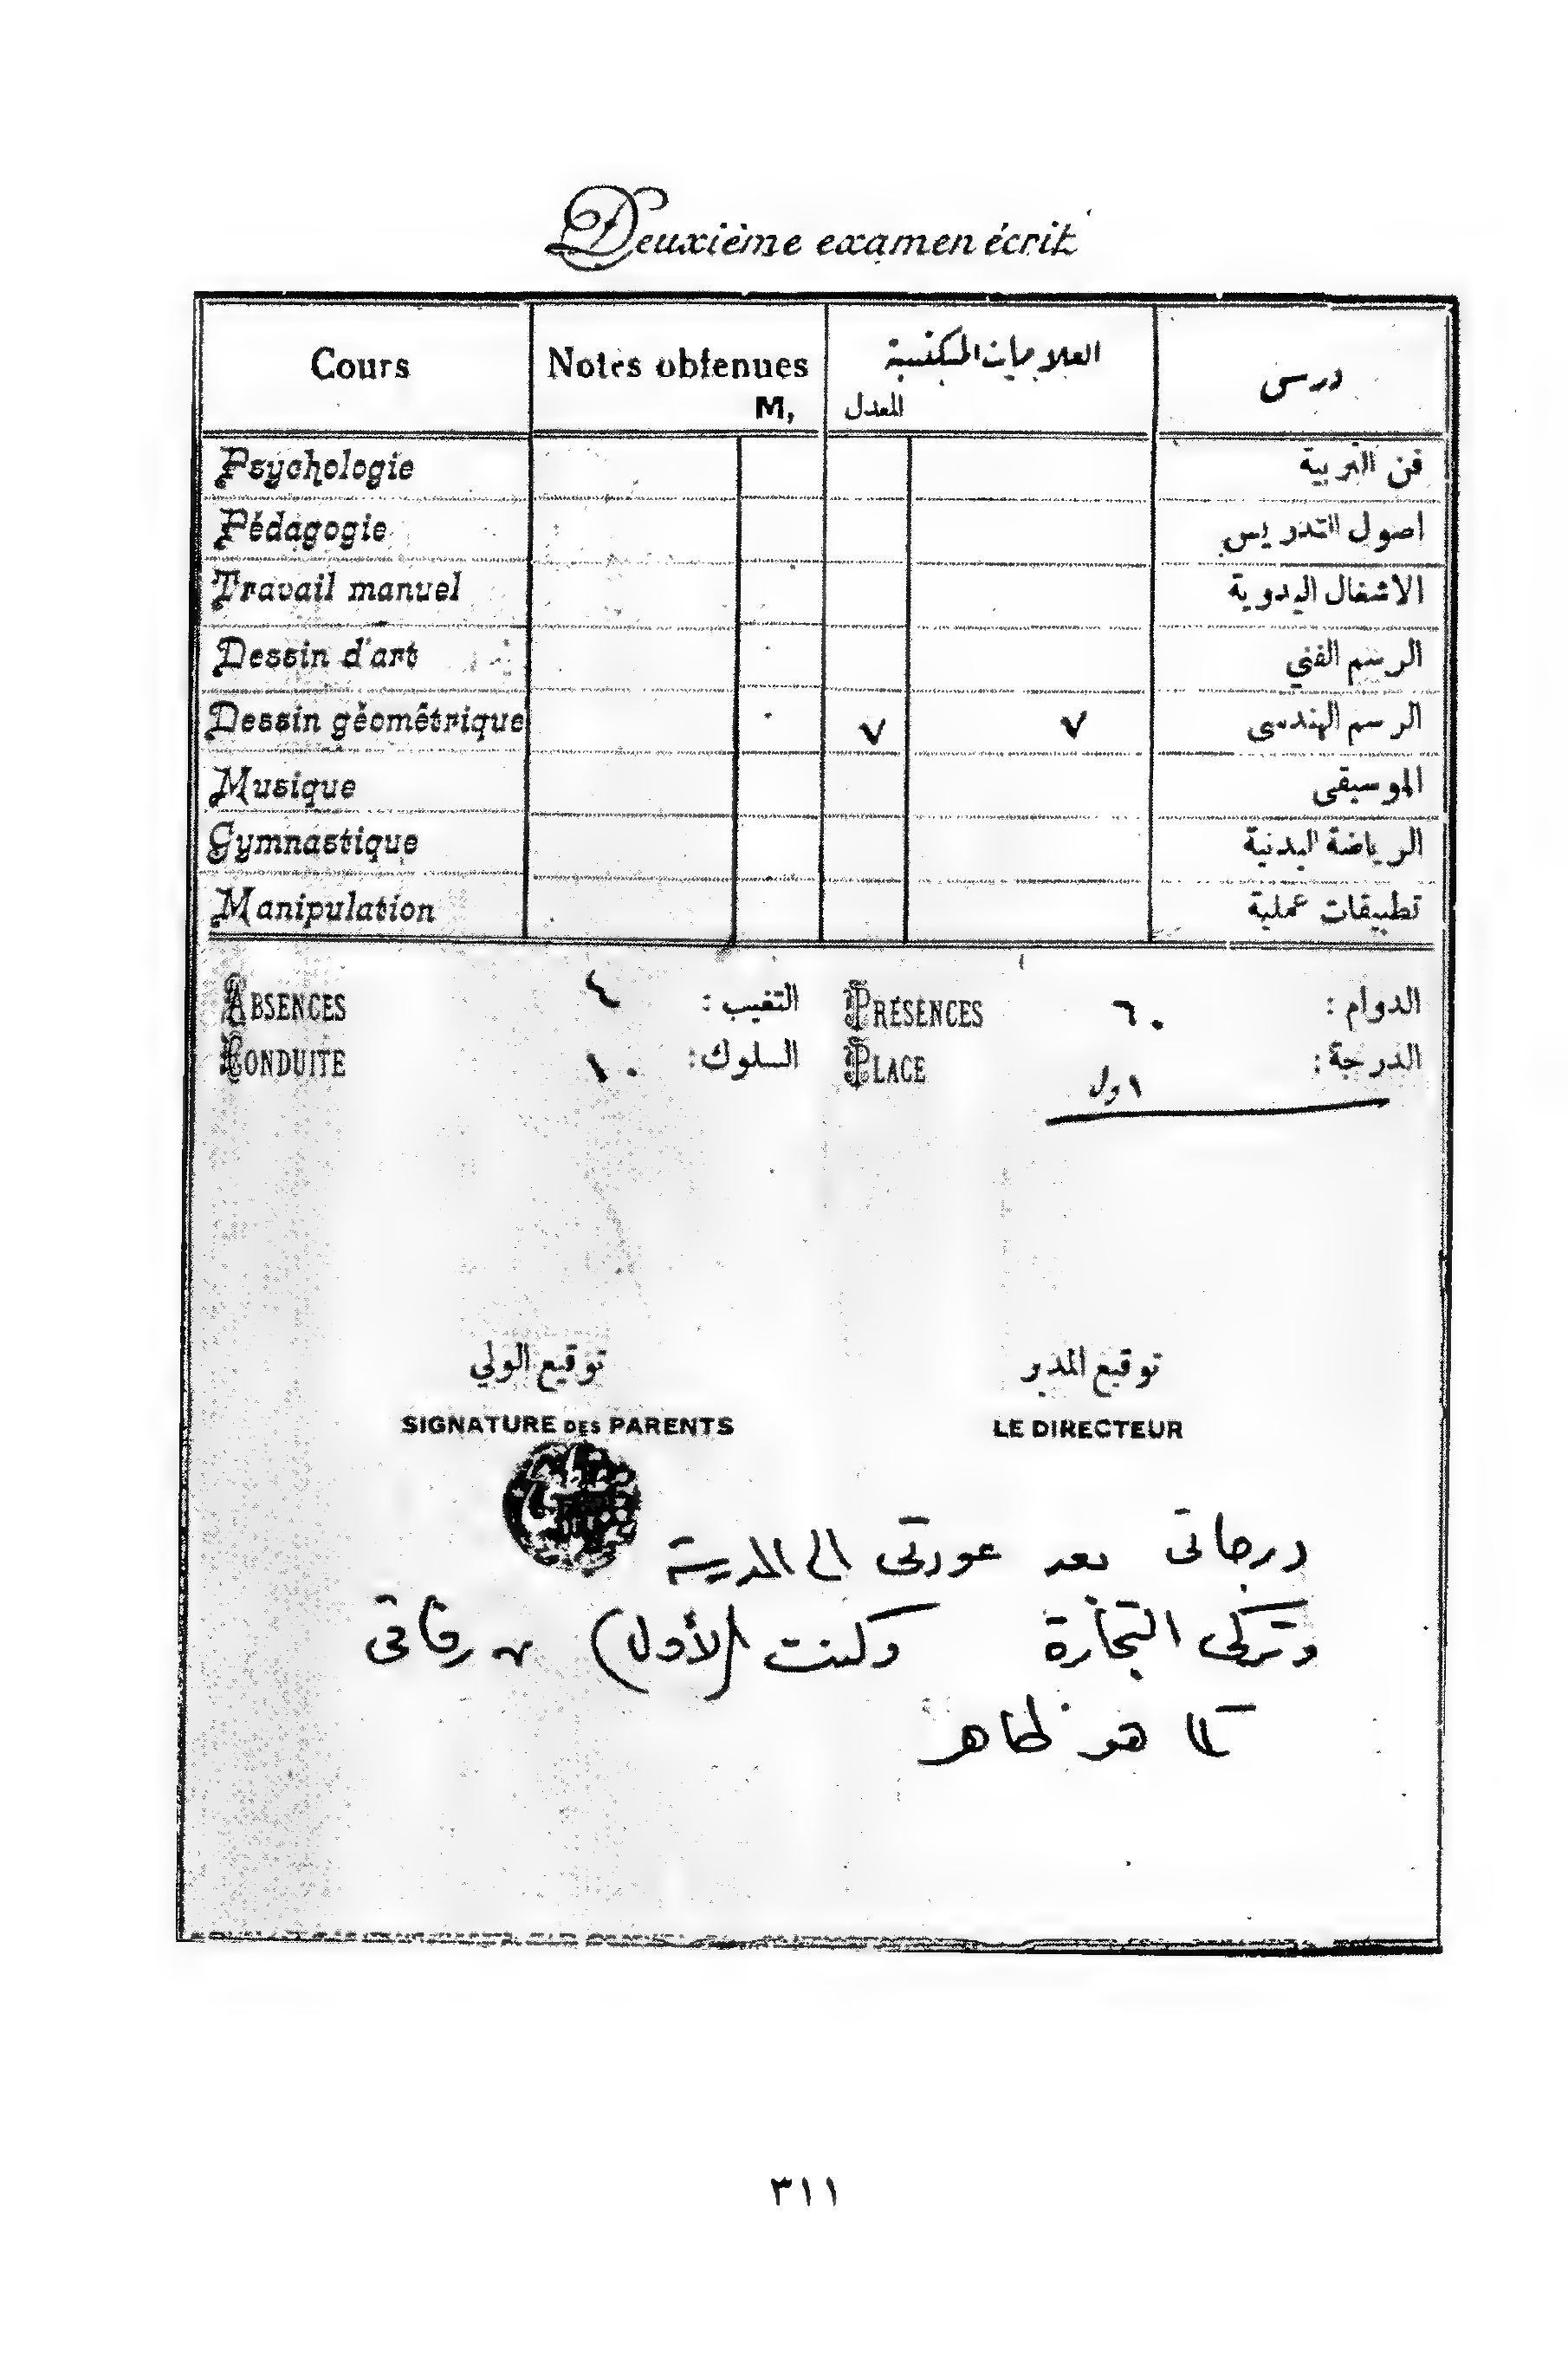 Deuxième examen écrit
Cours Notes obtenues العلامات المكتسبة درس
M, المعدل
Psychologie فن التربية
Pédagogie اصول التدريس
Travail manuel الاشغال اليدوية
Dessin d'art الرسم الفني
Dessin géométrique ٧ ٧ الرسم الهندسي
Musique الموسيقى
Gymnastique الرياضة البدنية
Manipulation تطبيقات عملية
ABSENCES ٤ التغيب : PRÉSENCES ٦٠ الدوام :
CONDUITE ١٠ السلوك: PLACE اول الدرجة:
توقيع الولي توقيع المدير
SIGNATURE DES PARENTS LE DIRECTEUR
درجاتى بعد عودتى الى المدرسة
وتركى التجارة وكنت (الأول) من رفاقى
كما هو ظاهر
٣١١